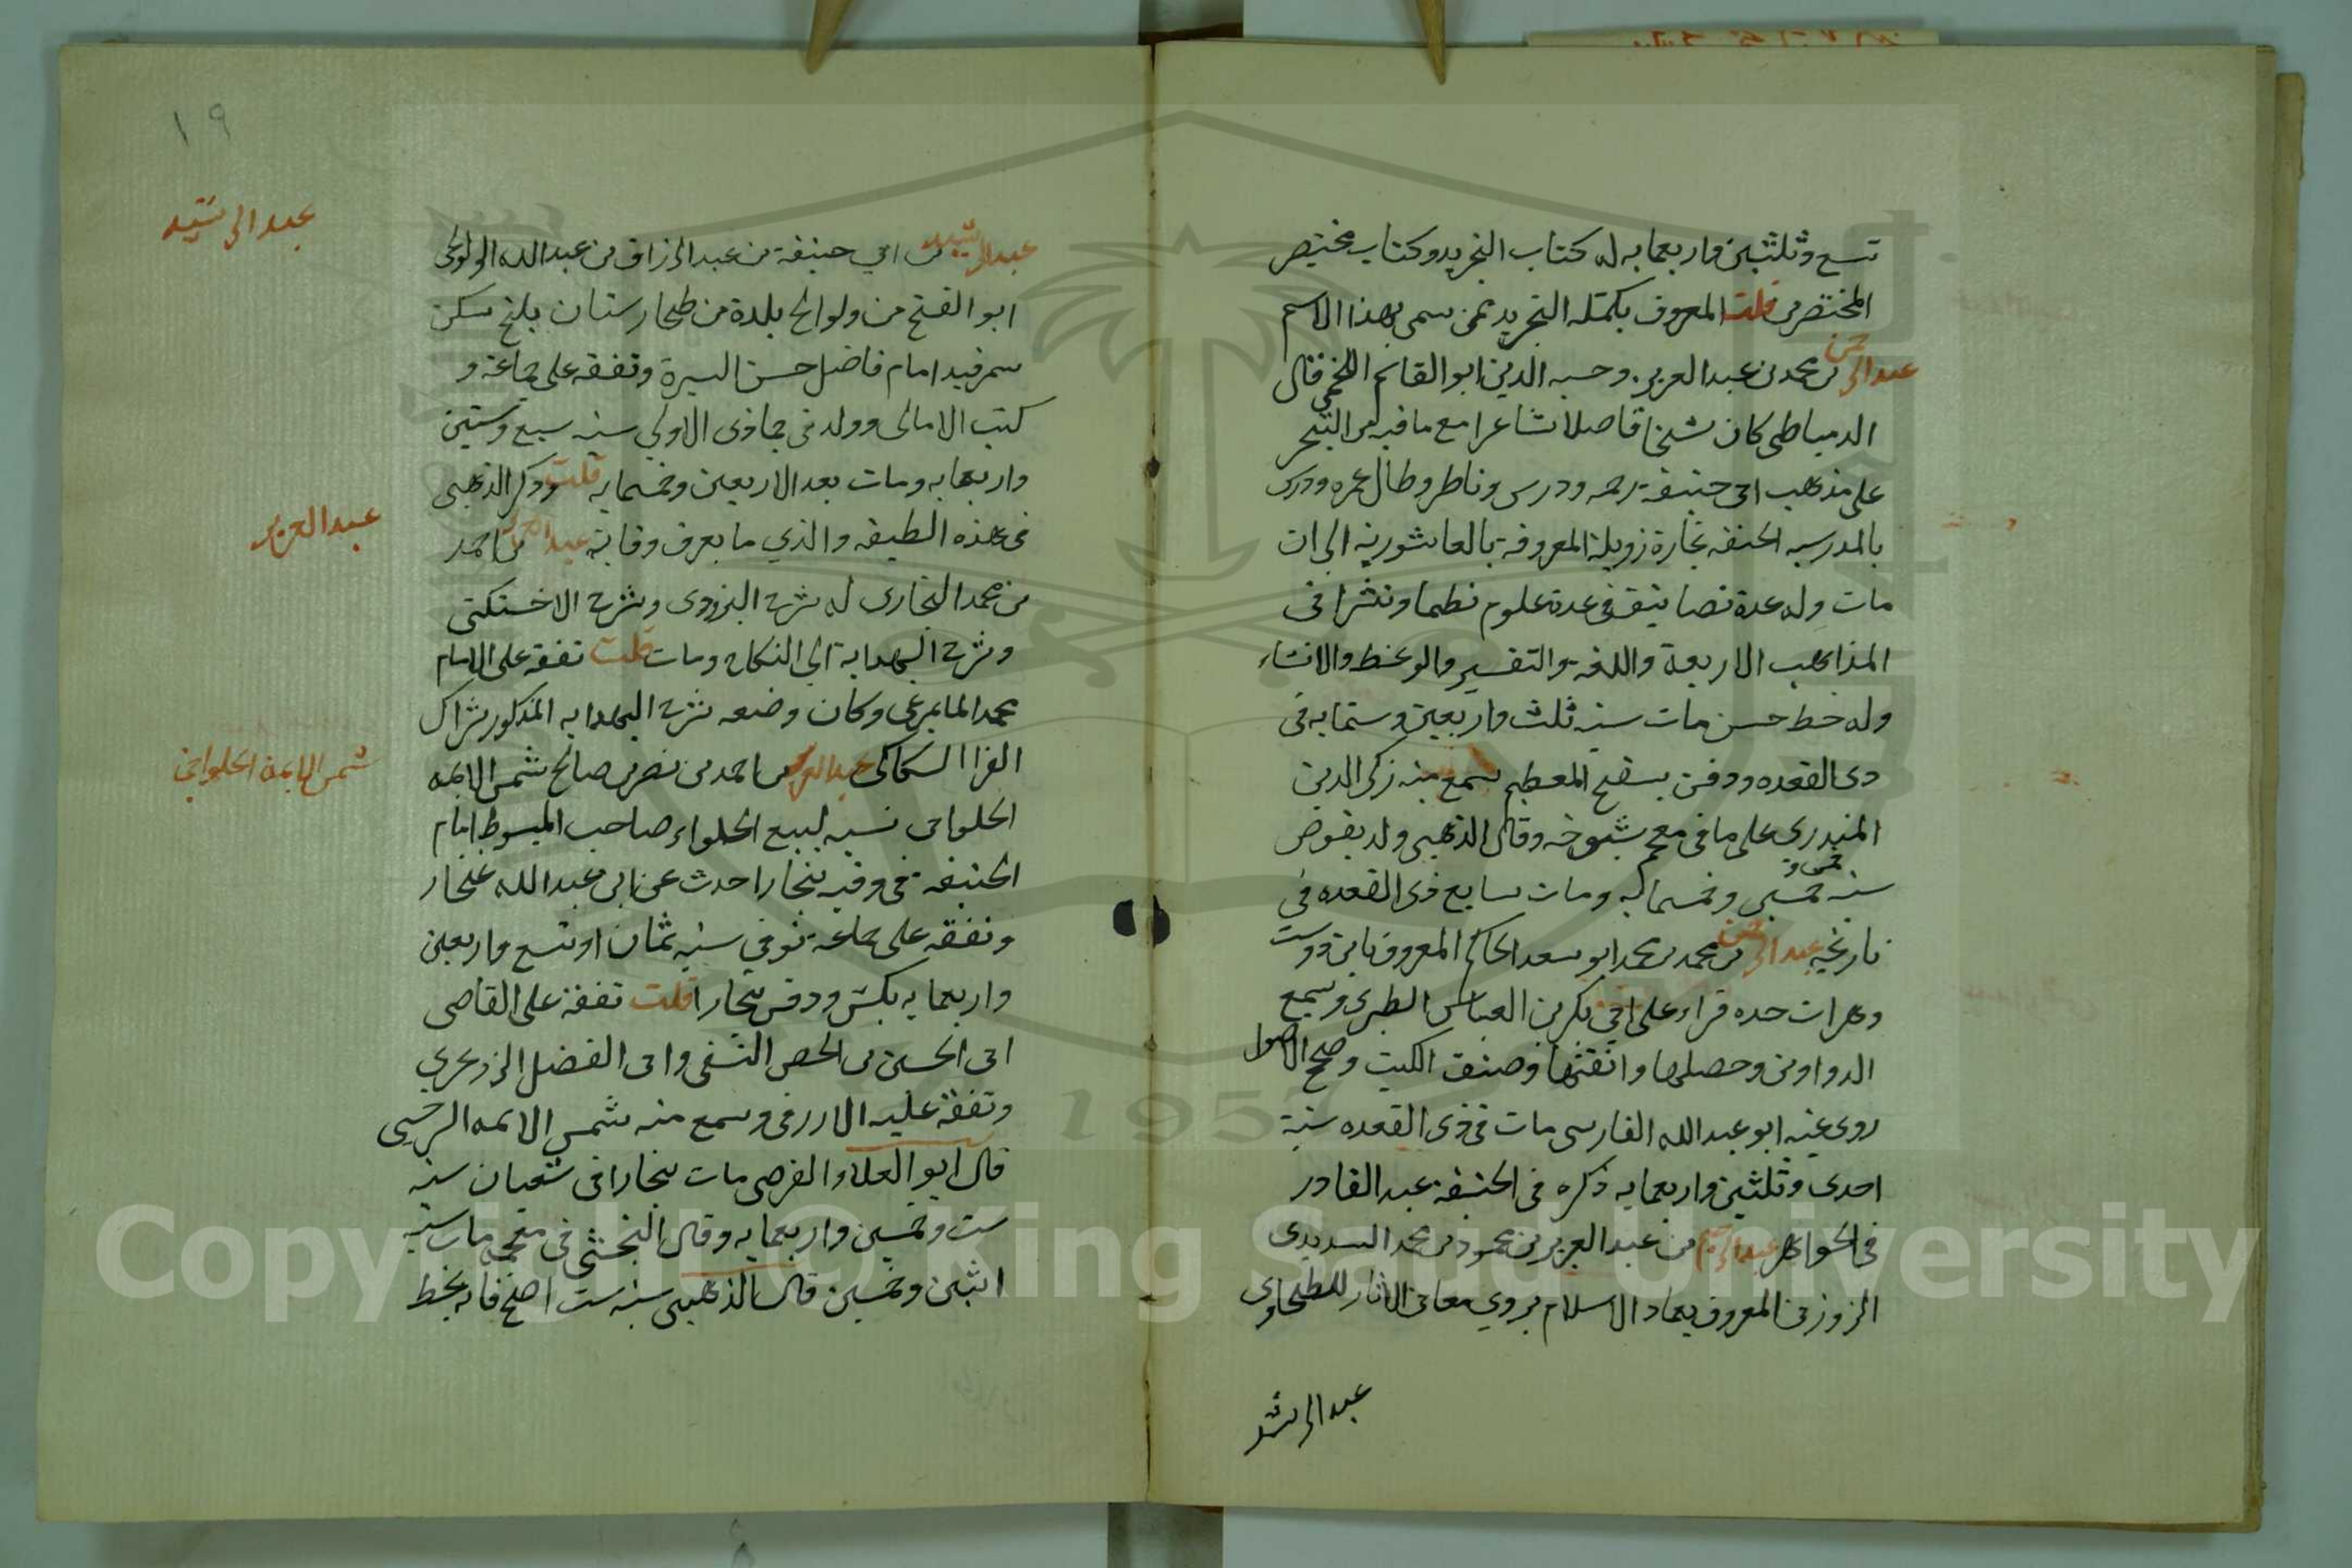 تسع وثلثين واربعمايه له كتاب التجريد وكتاب مختصر
المختصرين قلت المعروف بكمله التجريد ممن سمى بهذا الاسم
عبد الرحمن بن محمد بن عبد العزيز وحيه الدين ابو القاسم اللخمي قال
الدمياطي كان شيخا فاضلا شاعرا مع ما فيه من التبحر
على مذهب ابي حنيفة رحمه ودرس وناظر وطال عمره ودرس
بالمدرسه الحنفه بحارة زويلة المعروفة بالعاشورية الى ان
مات وله عدة تصانيف في عدة علوم نظما ونثرا في
المذاهب الاربعة واللغة والتفسير والوعظ والانشاء
وله خط حسن مات سنه ثلث واربعين وستمايه في
ذى القعده ودفن بسفح المعظم سمع منه زكي الدين
المنذرى على ما في معجم شيوخه وقال الذهبي ولد بقوص
سنه خمس وخمسين وخمسمايه ومات سابع ذى القعده في
تاريخه عبد الرحمن بن محمد بن محمد ابو سعد الحاكم المعروف بابن دوست
ودوست جده قراء على ابي بكر بن العباس الطبرى وسمع
الدواوين وحصلها واتقنها وصنف الكتب وصحح الاصول
روى عنه ابو عبد الله الفارسى مات في ذى القعده سنة
احدى وثلثين واربعمايه ذكره في الحنفية عبد القادر
في الجواهر عبد الرحيم بن عبد العزيز بن محمود بن محمد السديدى
الزوزنى المعروف بعماد الاسلام يروي معانى الاثار للطحاوى
عبد الرشد
١٩
عبد الرشيد بن ابي حنيفة بن عبد الرزاق بن عبد الله الولوالجى
ابو الفتح من ولوالج بلدة من طخارستان بلخ سكن
سمرقند امام فاضل حسن السيرة وتفقه على جماعة و
كتب الامالى وولد في جمادى الاولي سنه سبع وستين
واربعمايه ومات بعد الاربعين وخمسمايه قلت وذكر الذهبي
في هذه الطبقه والذي ما يعرف وفاته عبد العزيز بن احمد
بن محمد البخارى له شرح البزدوى وشرح الاخسكتى
وشرح الهدايه الي النكاح ومات قلت تفقه على الامام
محمد المايمرغى وكان وضعه شرح الهدايه المذكور بشراك
القرا السكاكى عبد العزيز بن احمد بن نصر بن صالح شمس الايمه
الحلوانى نسبه لبيع الحلواء صاحب المبسوط امام
الحنيفه في وقته ببخارا حدث عن ابى عبد الله غنجار
وتفقه على جماعة توفي سنه ثمان او تسع واربعين
واربعمايه بكش ودفن ببخارا قلت تفقه على القاضى
ابى الحسين بن الخضر النسفى وابى الفضل الزرنجري
وتفقه عليه الازرقى وسمع منه شمس الايمه السرخسى
قال ابو العلاء الفرضى مات ببخارا في شعبان سنه
ست وخمسين واربعمايه وقال النخشبى في معجمه مات سنه
اثنين وخمسين قال الذهبي سنه ست اصح فانه بخط
عبد الرشيد
عبد العزيز
شمس الايمة الحلوانى
Copyright © King Saud University
1957